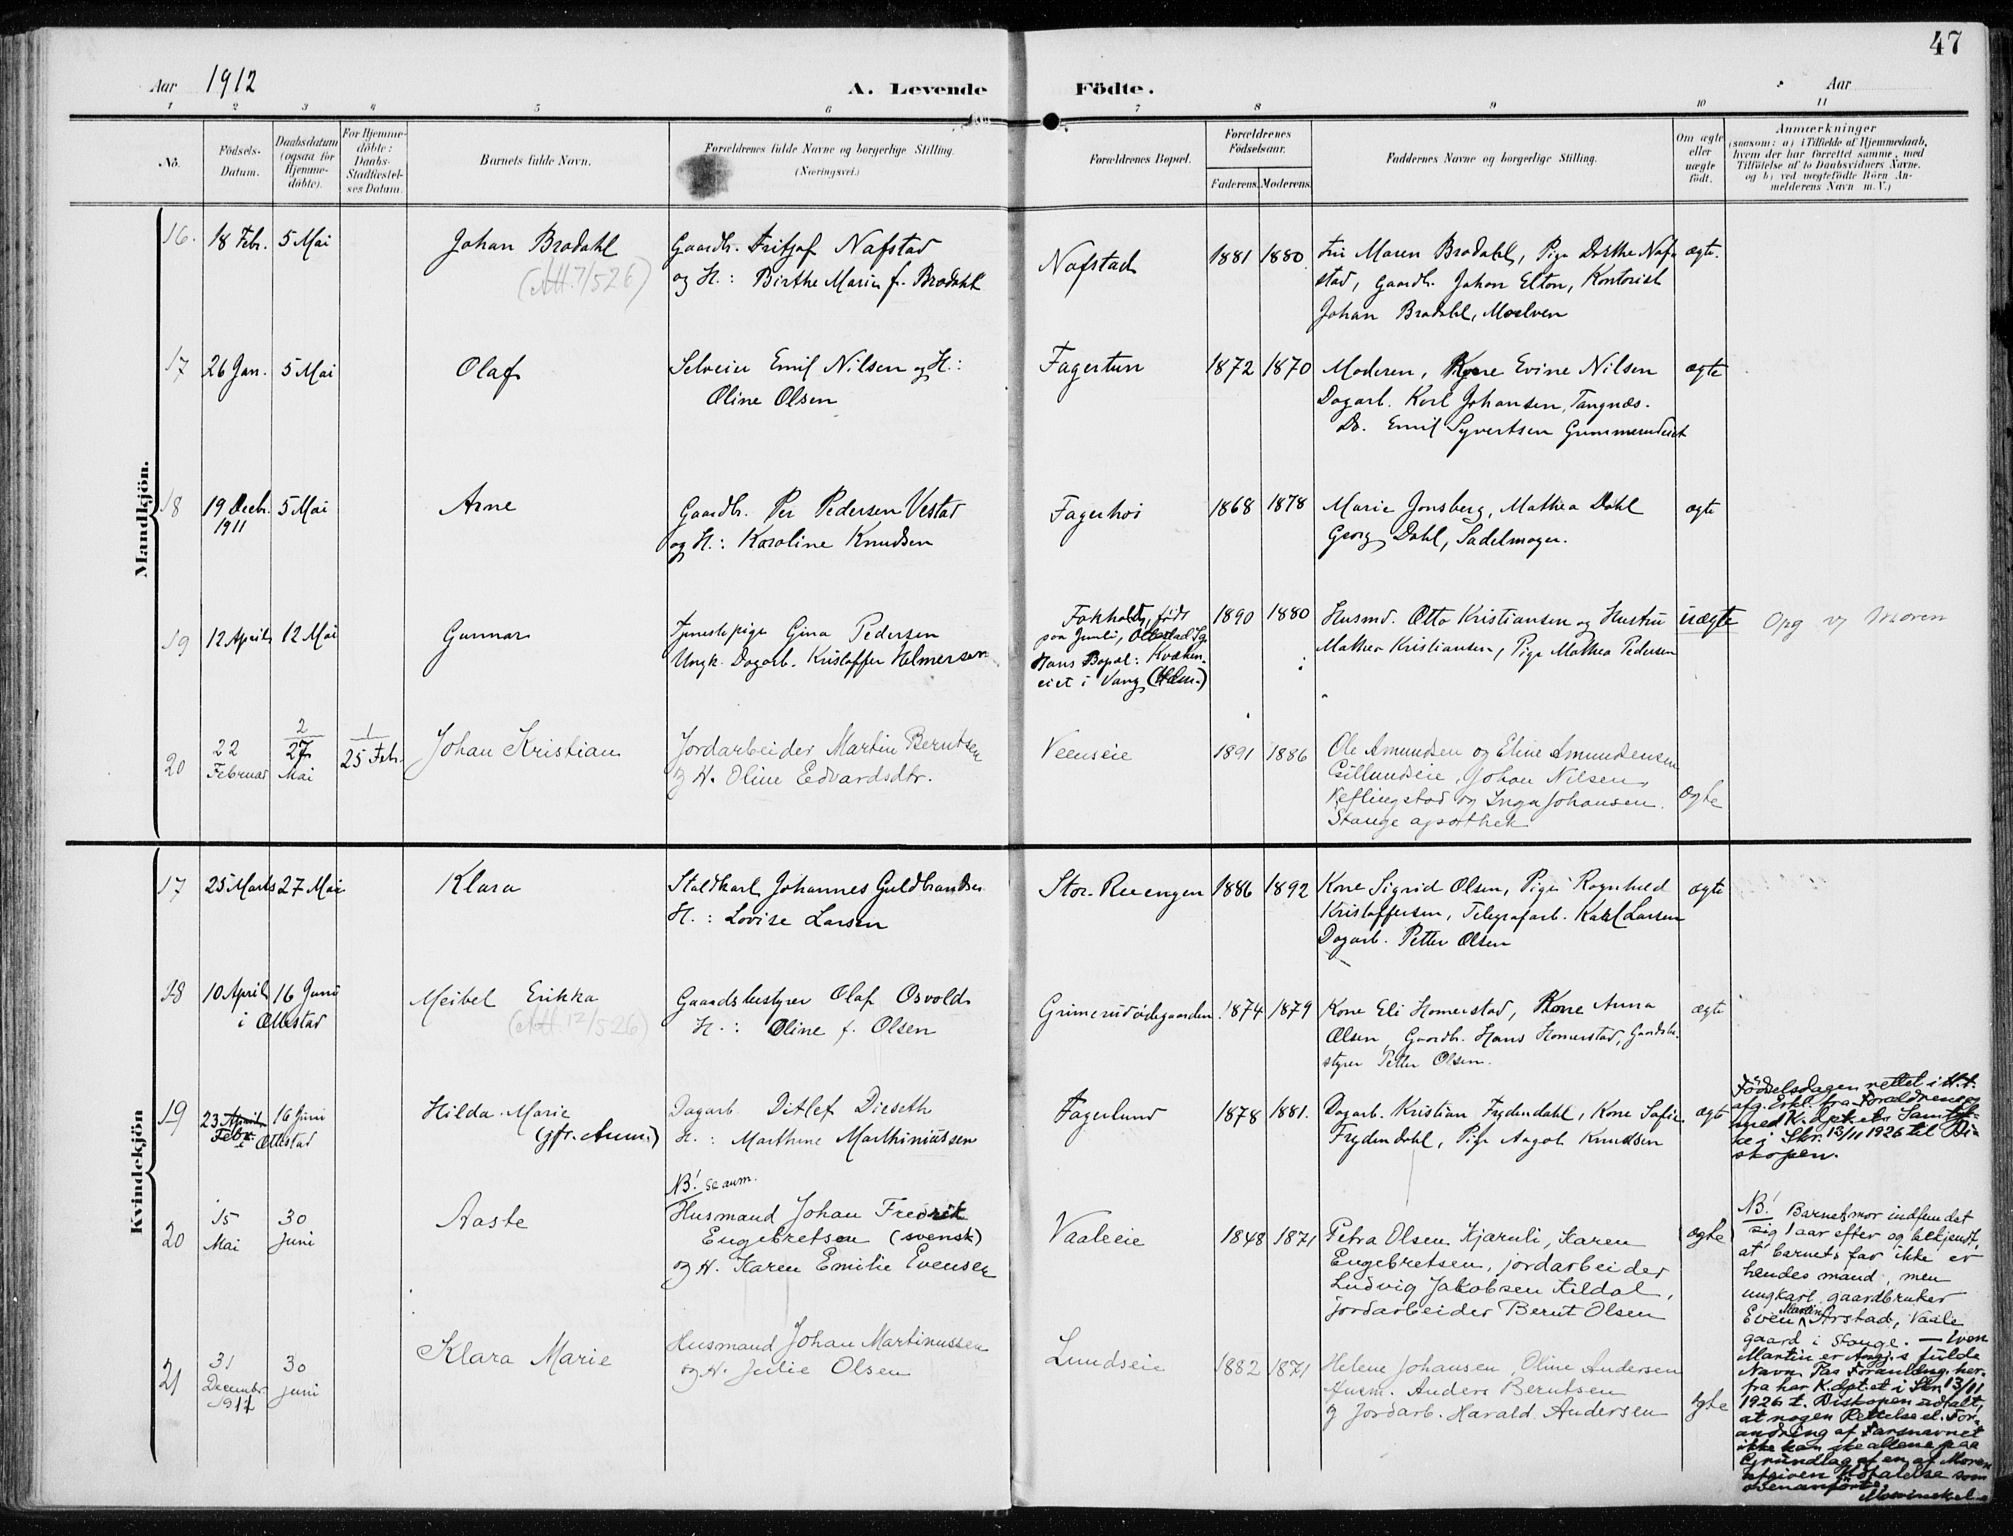 47
Aar 1912 A. Levende Födte. Aar
1 2 3 4 5 6 7 8 9 10 11
Nö.
Födsels-Datum.
Daabsdatum (ogsaa för Hjemme-döbte).
For Hjemme-döbte: Daabs-Stadfæstel-ses Datum.
Barnets fulde Navn.
Forældrenes fulde Navne og borgerlige Stilling.
(Næringsvei.)
Forældrenes Bopæl.
Forældrenes Födselsaar.
Faderens. Moderens.
Faddernes Navne og borgerlige Stilling.
Om ægte eller uægte födt.
Anmærkninger
(saasom: a) i Tilfælde af Hjemmedaab,
hvem der har forrettet samme, med
Tilföielse af to Daabsvidners Navne,
og b) ved uægtefödte Börn An-
melderens Navn m. V.)
Mandkjön.
16. 18 Febr. 5 Mai Johan Brodahl Gaardbr. Fritjof Nafstad Nafstad 1881 1880 Fru Maren Brodahl, Pige Dorthe Naf- ægte.
(Att. 7/5 26) og H.: Birthe Marie f. Brodahl stad, Gaardbr. Johan Elton, Kontorist
Johan Brodahl, Moelven
17 26 Jan. 5 Mai Olaf Selveier Emil Nilsen og H.: Fagertun 1872 1870 Moderen, Kone Evine Nilsen ægte
Oline Olsen Dagarb. Karl Johansen, Tangnæs.
Do. Emil Syvertsen
18 19 Decbr. 5 Mai Arne Gaardbr. Per Pedersen Vestad Fagerhøi 1868 1878 Marie Jonsberg, Mathea Dahl ægte
1911 og H.: Karoline Knudsen Georg Dahl, Sadelmager.
19 12 April 12 Mai Gunnar Tjenestepige Gina Pedersen 1890 1880 Husmd. Otto Kristiansen og Hustru uægte Opg. af Moren
Ungk. Dagarb. Kristoffer Helmersen Mathea Kristiansen, Pige Mathea Pedersen
Hans Bopæl:
eiet i Vang (Hdm.)
20 22 Februar 2/27 Mai 1/25 Febr. Johan Kristian Jordarbeider Martin Berntsen Veenseie 1891 1886 Ole Amundsen og Eline Amundsensen
og H. Oline Edvardsdtr. Gillundseie, Johan Nilsen
og Inga Johansen. ægte
Stange apothek
Kvindekjön
17 25 Marts 27 Mai Klara Staldkarl Johannes Guldbrandsen Stor-Reengen 1886 1892 Kone Sigrid Olsen, Pige Ragnhild ægte
H.: Lovise Larsen Kristoffersen, Telegrafarb. Karl Larsen
Dagarb. Petter Olsen
18 10 April 16 Juni Meibel Erikka Gaardsbestyrer Olaf Osvold Grimerudødegaarden 1874 1879 Kone Eli Homerstad, Kone Anna ægte
i Ottestad (Att. 12/5 26) H.: Oline f. Olsen Olsen, Gaardbr. Hans Homerstad, Gaardsbe-
styrer Petter Olsen.
19 23 April 16 Juni Hilda Marie Dagarb. Ditlef Dieseth Fagerlund 1878 1881. Dagarb. Kristian Frydendahl, Kone Sofie ægte
Febr. i Ottestad (jfr. Anm.) H.: Marthine Marthiniussen Frydendahl, Pige Aagot Knudsen
Födselsdagen rettet i H.t.
afg. Erkl. fra Forældrene og
med K. dpt. etr. Samtyk-
ke i Skr. 13/11 1926 til Bi-
skopen.
NB! se anm.
20 15 Mai 30 Juni Aaste Husmand Johan Fredrik Vaaleie 1848 1871 Petra Olsen Kjærnli, Karen (ægte)
Engebretsen (svensk) Engebretsen, jordarbeider
og H. Karen Emilie Evensen Ludvig Jakobsen Kildal,
jordarbeider Bernt Olsen
NB! Barnets mor indfandt
sig 1 aar efter og bekjendt,
at barnets far ikke er
hendes mand, men
ungkarl, gaardbruker
Even Martin Arstad, Vaale
gaard i Stange. — Even
Martin er Angj.s fulde
Navn. Paa Foranledng her-
fra har K. dpt. et i Skr. 13/11
1926 t. Biskopen udtalt,
at nogen Rettelse el. For-
andring af Farsnavnet
ikke kan ske allene paa
Grundlag af en af Moren
afgiven Udtalelse som
ovenanført.
21 31 Decembr. 1911 30 Juni Klara Marie Husmand Johan Martinussen Lundseie 1882 1871 Helene Johansen, Oline Andersen
og H. Julie Olsen Husm. Anders Berntsen
og Jordarb. Harald Andersen ægte